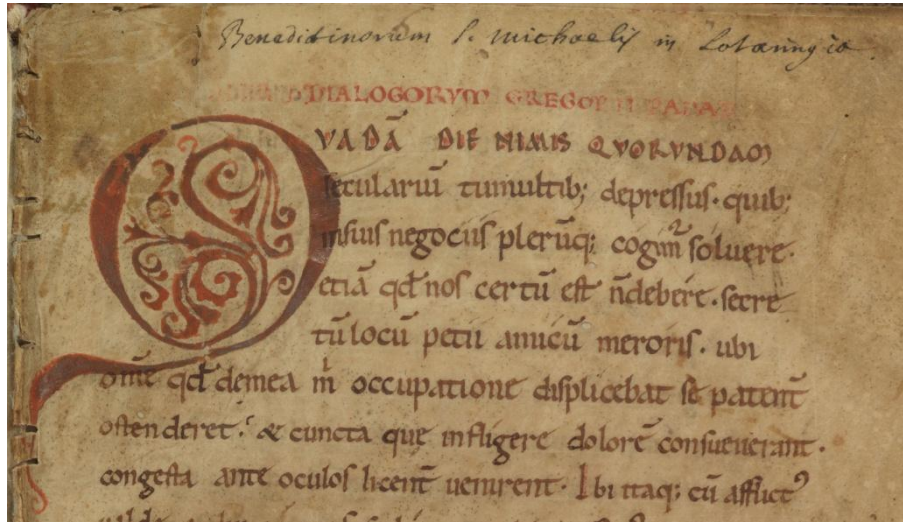 Benedictinorum S. Michaelis in Lotaringia
DIALOGORVM GREGORII PAPAE
QVADĀ DIE NIMIS QVORVNDAM
seculariū tumultib; depressus · quib;
insuis negociis plerūq; cogim̃ soluere ·
etiā qd̄ nos certū est ñdebere · secre
tū locū petii amicū meroris · ubi
om̄e qd̄ demea m̄ occupatione displicebat se patent̄
ostenderet · & cuncta que infligere dolorē consueuerant ·
congesta ante oculos licent̄ uenirent · Ibi itaq; cū afflictꝰ